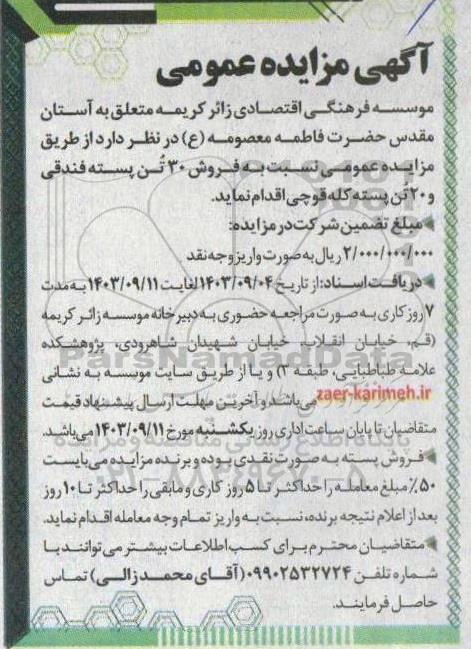 آگهی مزایده عمومی
موسسه فرهنگی اقتصادی زائر کریمه متعلق به آستان
مقدس حضرت فاطمه معصومه (ع) در نظر دارد از طریق
مزایده عمومی نسبت به فروش ۳۰ تُن پسته فندقی
و ۲۰ تُن پسته کله قوچی اقدام نماید.
مبلغ تضمین شرکت در مزایده:
۲/۰۰۰/۰۰۰/۰۰۰ ریال به صورت واریز وجه نقد
دریافت اسناد: از تاریخ ۱۴۰۳/۰۹/۰۴ لغایت ۱۴۰۳/۰۹/۱۱ به مدت
۷ روز کاری به صورت مراجعه حضوری به دبیرخانه موسسه زائر کریمه
(قم، خیابان انقلاب، خیابان شهیدان شاهرودی، پژوهشکده
علامه طباطبایی، طبقه ۳) و یا از طریق سایت موسسه به نشانی
zaer-karimeh.ir می‌باشد و آخرین مهلت ارسال پیشنهاد قیمت
متقاضیان تا پایان ساعت اداری روز یکشنبه مورخ ۱۴۰۳/۰۹/۱۱ می‌باشد.
فروش پسته به صورت نقدی بوده و برنده مزایده می‌بایست
۵۰٪ مبلغ معامله را حداکثر تا ۵ روز کاری و مابقی را حداکثر تا ۱۰ روز
بعد از اعلام نتیجه برنده، نسبت به واریز تمام وجه معامله اقدام نماید.
متقاضیان محترم برای کسب اطلاعات بیشتر می‌توانند با
شماره تلفن ۰۹۹۰۲۵۳۲۷۲۴ (آقای محمد زالی) تماس
حاصل فرمایند.
ParsNamadData